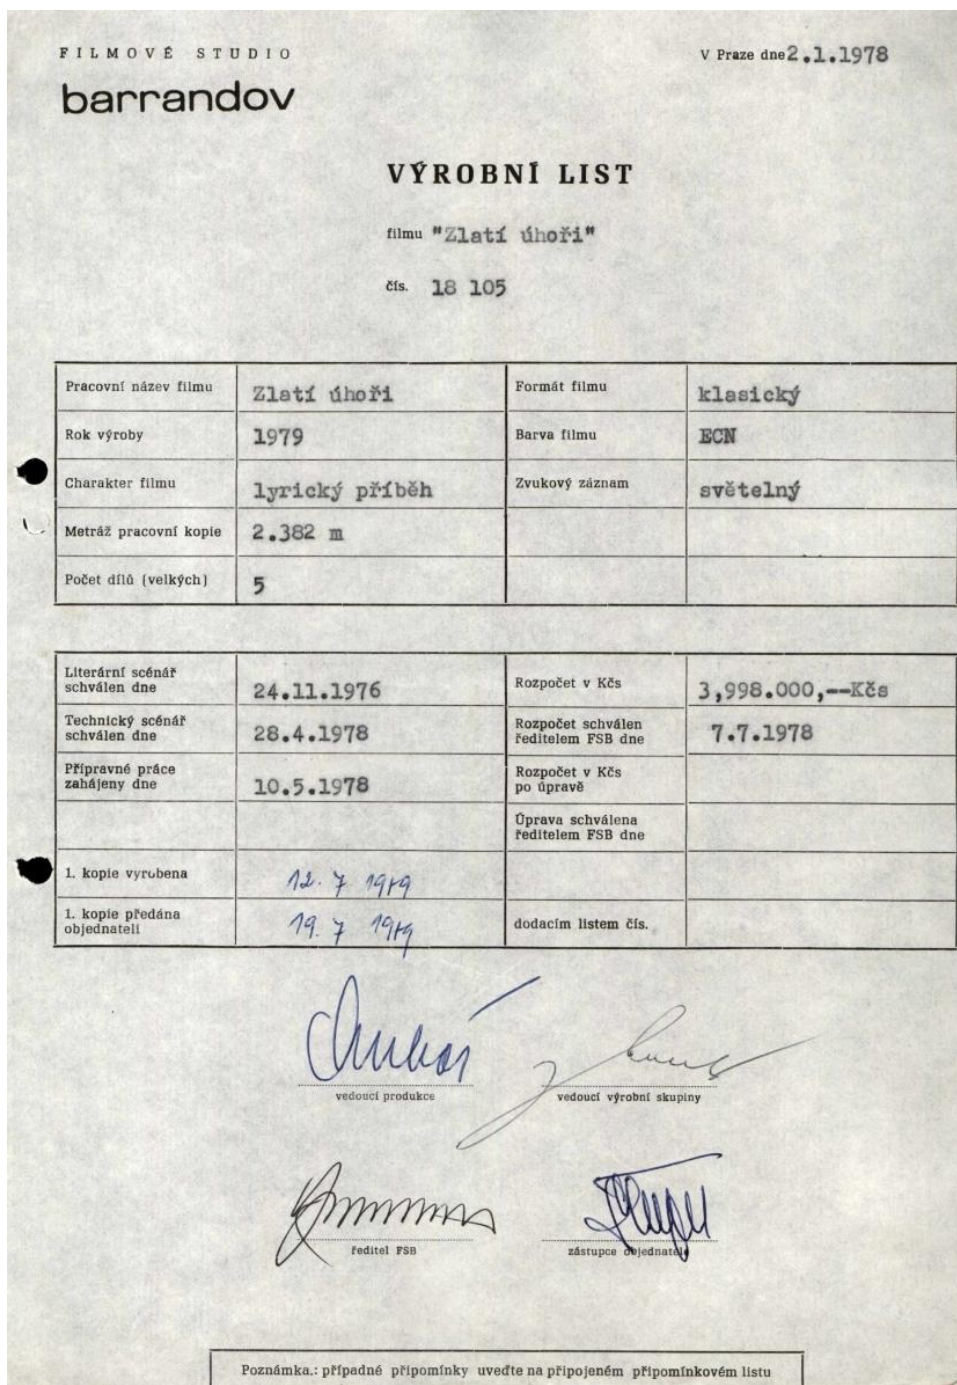 FILMOVÉ STUDIO
barrandov
V Praze dne 2.1.1978
VÝROBNÍ LIST
filmu "Zlatí úhoři"
čís. 18 105
Pracovní název filmu Zlatí úhoři Formát filmu klasický
Rok výroby 1979 Barva filmu ECN
Charakter filmu lyrický příběh Zvukový záznam světelný
Metráž pracovní kopie 2.382 m
Počet dílů (velkých) 5
Literární scénář
schválen dne 24.11.1976 Rozpočet v Kčs 3,998.000,--Kčs
Technický scénář
schválen dne 28.4.1978 Rozpočet schválen
ředitelem FSB dne 7.7.1978
Přípravné práce
zahájeny dne 10.5.1978 Rozpočet v Kčs
po úpravě
Úprava schválena
ředitelem FSB dne
1. kopie vyrobena 12. 7 1979
1. kopie předána
objednateli 19. 7 1979 dodacím listem čís.
vedoucí produkce vedoucí výrobní skupiny
ředitel FSB zástupce objednatele
Poznámka.: případné připomínky uveďte na připojeném připomínkovém listu